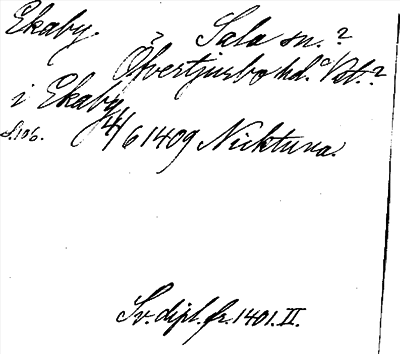 Ekaby. ? Sala sn.?
Öfvertjurbo hd. Vstm.?
i Ekaby
S. 106. 4/6 1409 Nicktuna.
Sv. dipl. fr. 1401. II.